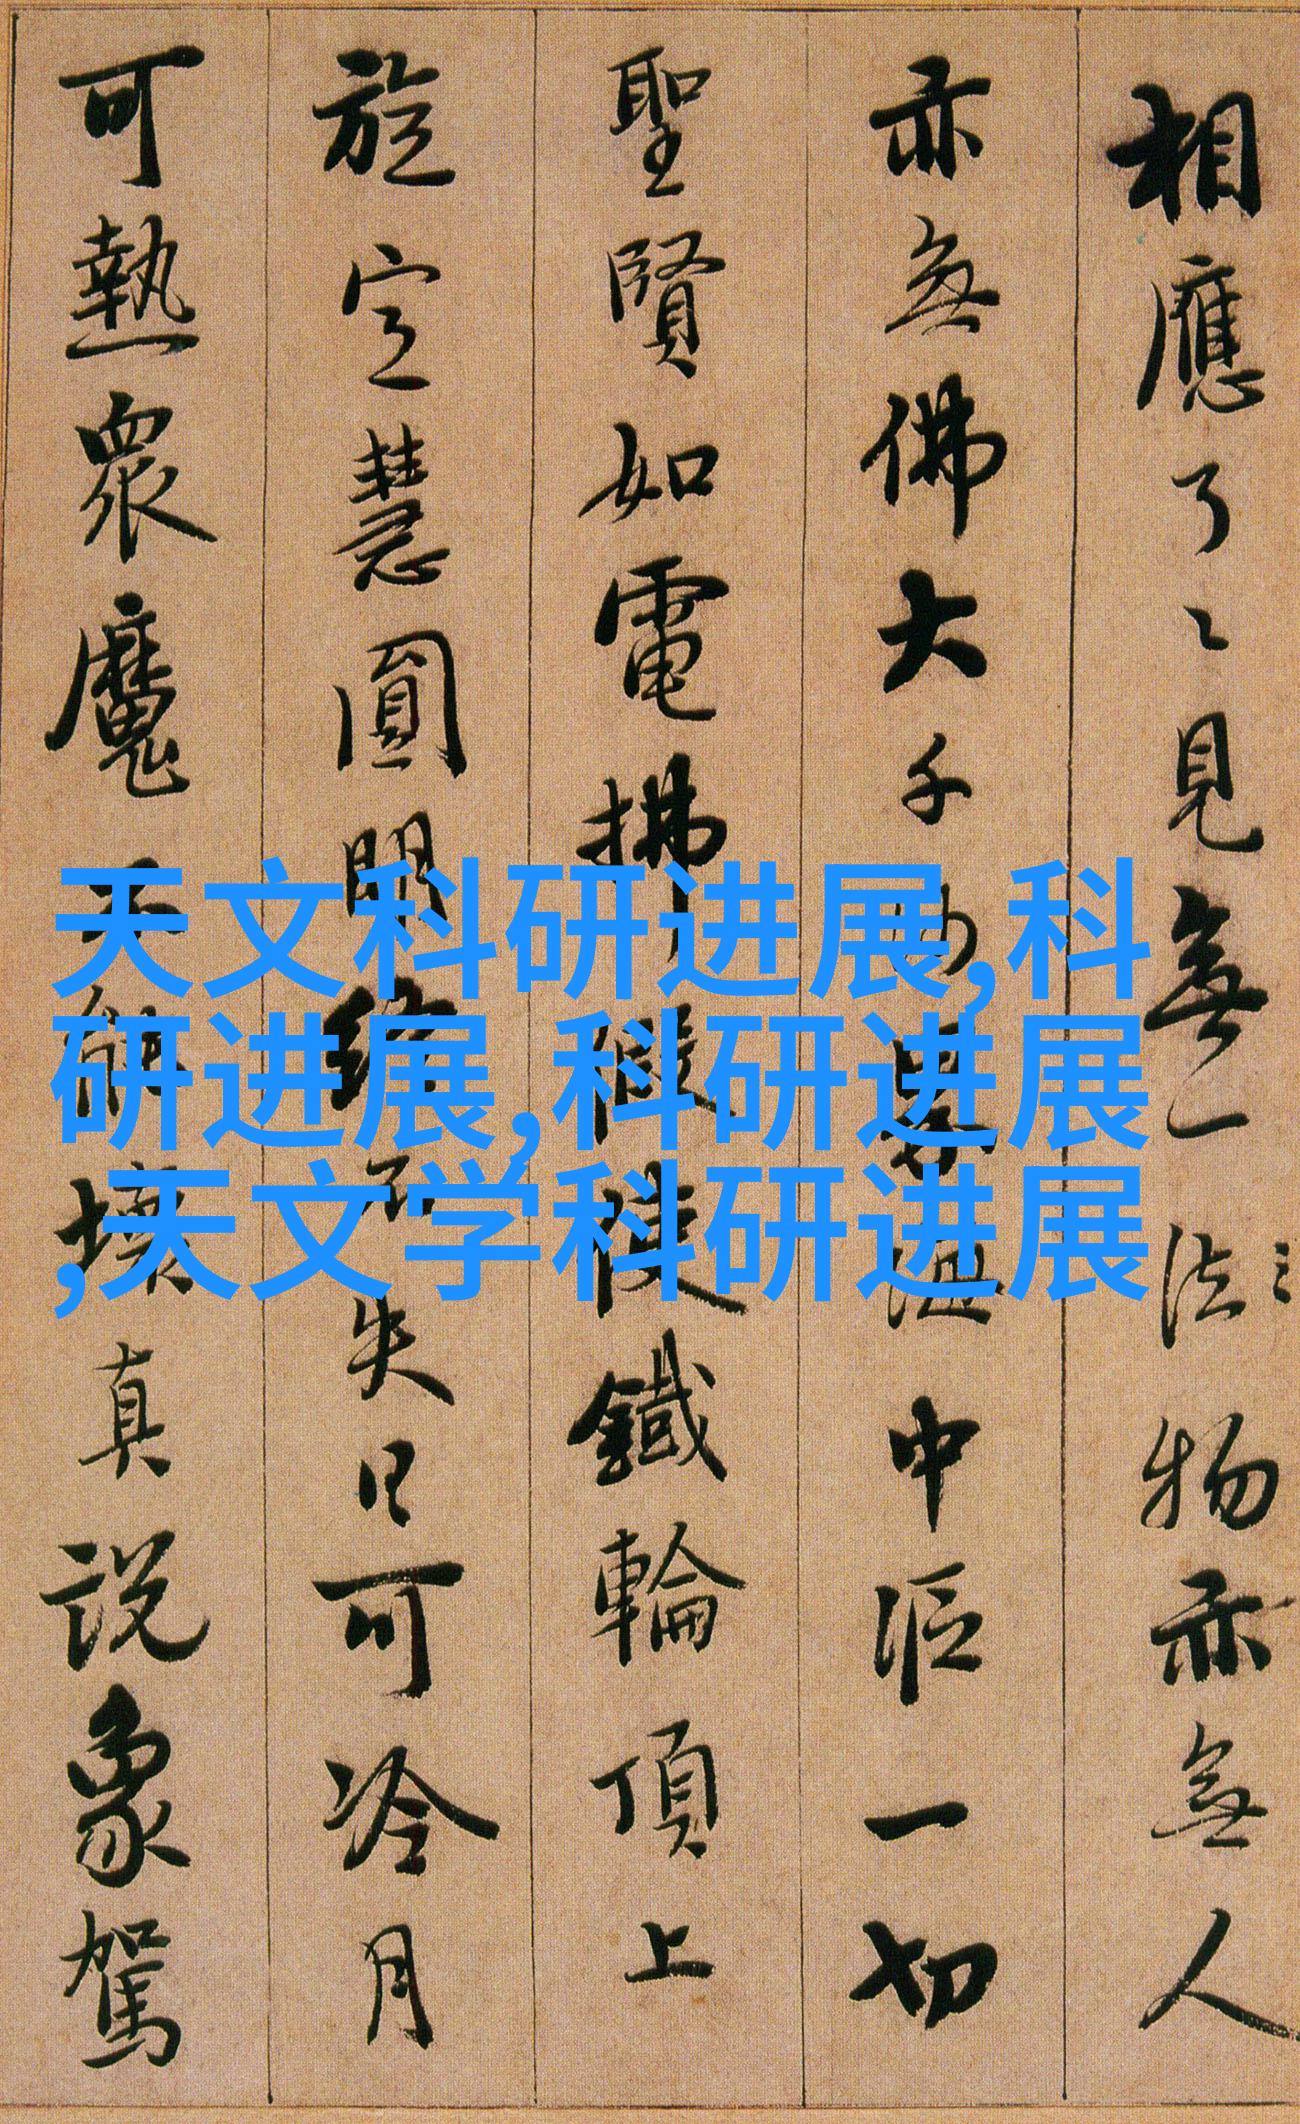 相應了〻見無一法物亦無人
亦無佛大千沙界海中漚一切
聖賢如電拂假使鐵輪頂上
旋定慧圓明終不失日可冷月
可熱眾魔不能壞真說象駕
天文科研进展,科
研进展,科研进展
,天文学科研进展